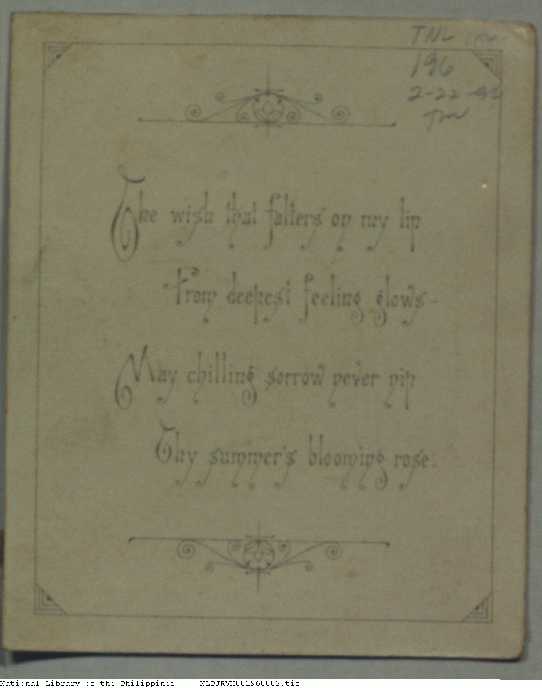 TNL
196
2-22-92
The wish that falters on my lip
From deepest feeling glows-
May chilling sorrow never nip
Thy summer's blooming rose.
National Library of the Philippines